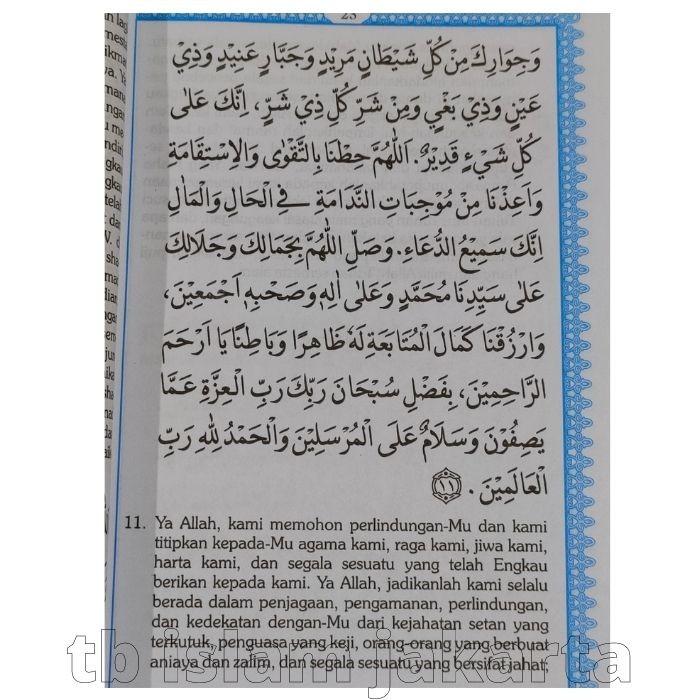 23
وَجِوَارِكَ مِنْ كُلِّ شَيْطَانٍ مَرِيْدٍ وَجَبَّارٍ عَنِيْدٍ وَذِيْ
عَيْنٍ وَذِيْ بَغْيٍ وَمِنْ شَرِّ كُلِّ ذِيْ شَرٍّ، اِنَّكَ عَلٰى
كُلِّ شَيْءٍ قَدِيْرٌ. اَللّٰهُمَّ حِطْنَا بِالتَّقْوٰى وَالْاِسْتِقَامَةِ
وَاَعِذْنَا مِنْ مُوْجِبَاتِ النَّدَامَةِ فِي الْحَالِ وَالْمَاٰلِ
اِنَّكَ سَمِيْعُ الدُّعَاءِ. وَصَلِّ اللّٰهُمَّ بِجَمَالِكَ وَجَلَالِكَ
عَلٰى سَيِّدِنَا مُحَمَّدٍ وَعَلٰى اٰلِهٖ وَصَحْبِهٖ اَجْمَعِيْنَ،
وَارْزُقْنَا كَمَالَ الْمُتَابَعَةِ لَهٗ ظَاهِرًا وَبَاطِنًا يَا اَرْحَمَ
الرَّاحِمِيْنَ، بِفَضْلِ سُبْحَانَ رَبِّكَ رَبِّ الْعِزَّةِ عَمَّا
يَصِفُوْنَ وَسَلَامٌ عَلَى الْمُرْسَلِيْنَ وَالْحَمْدُ لِلّٰهِ رَبِّ
الْعَالَمِيْنَ. ١١
11. Ya Allah, kami memohon perlindungan-Mu dan kami
titipkan kepada-Mu agama kami, raga kami, jiwa kami,
harta kami, dan segala sesuatu yang telah Engkau
berikan kepada kami. Ya Allah, jadikanlah kami selalu
berada dalam penjagaan, pengamanan, perlindungan,
dan kedekatan dengan-Mu dari kejahatan setan yang
terkutuk, penguasa yang keji, orang-orang yang berbuat
aniaya dan zalim, dan segala sesuatu yang bersifat jahat;
tb islam jakarta